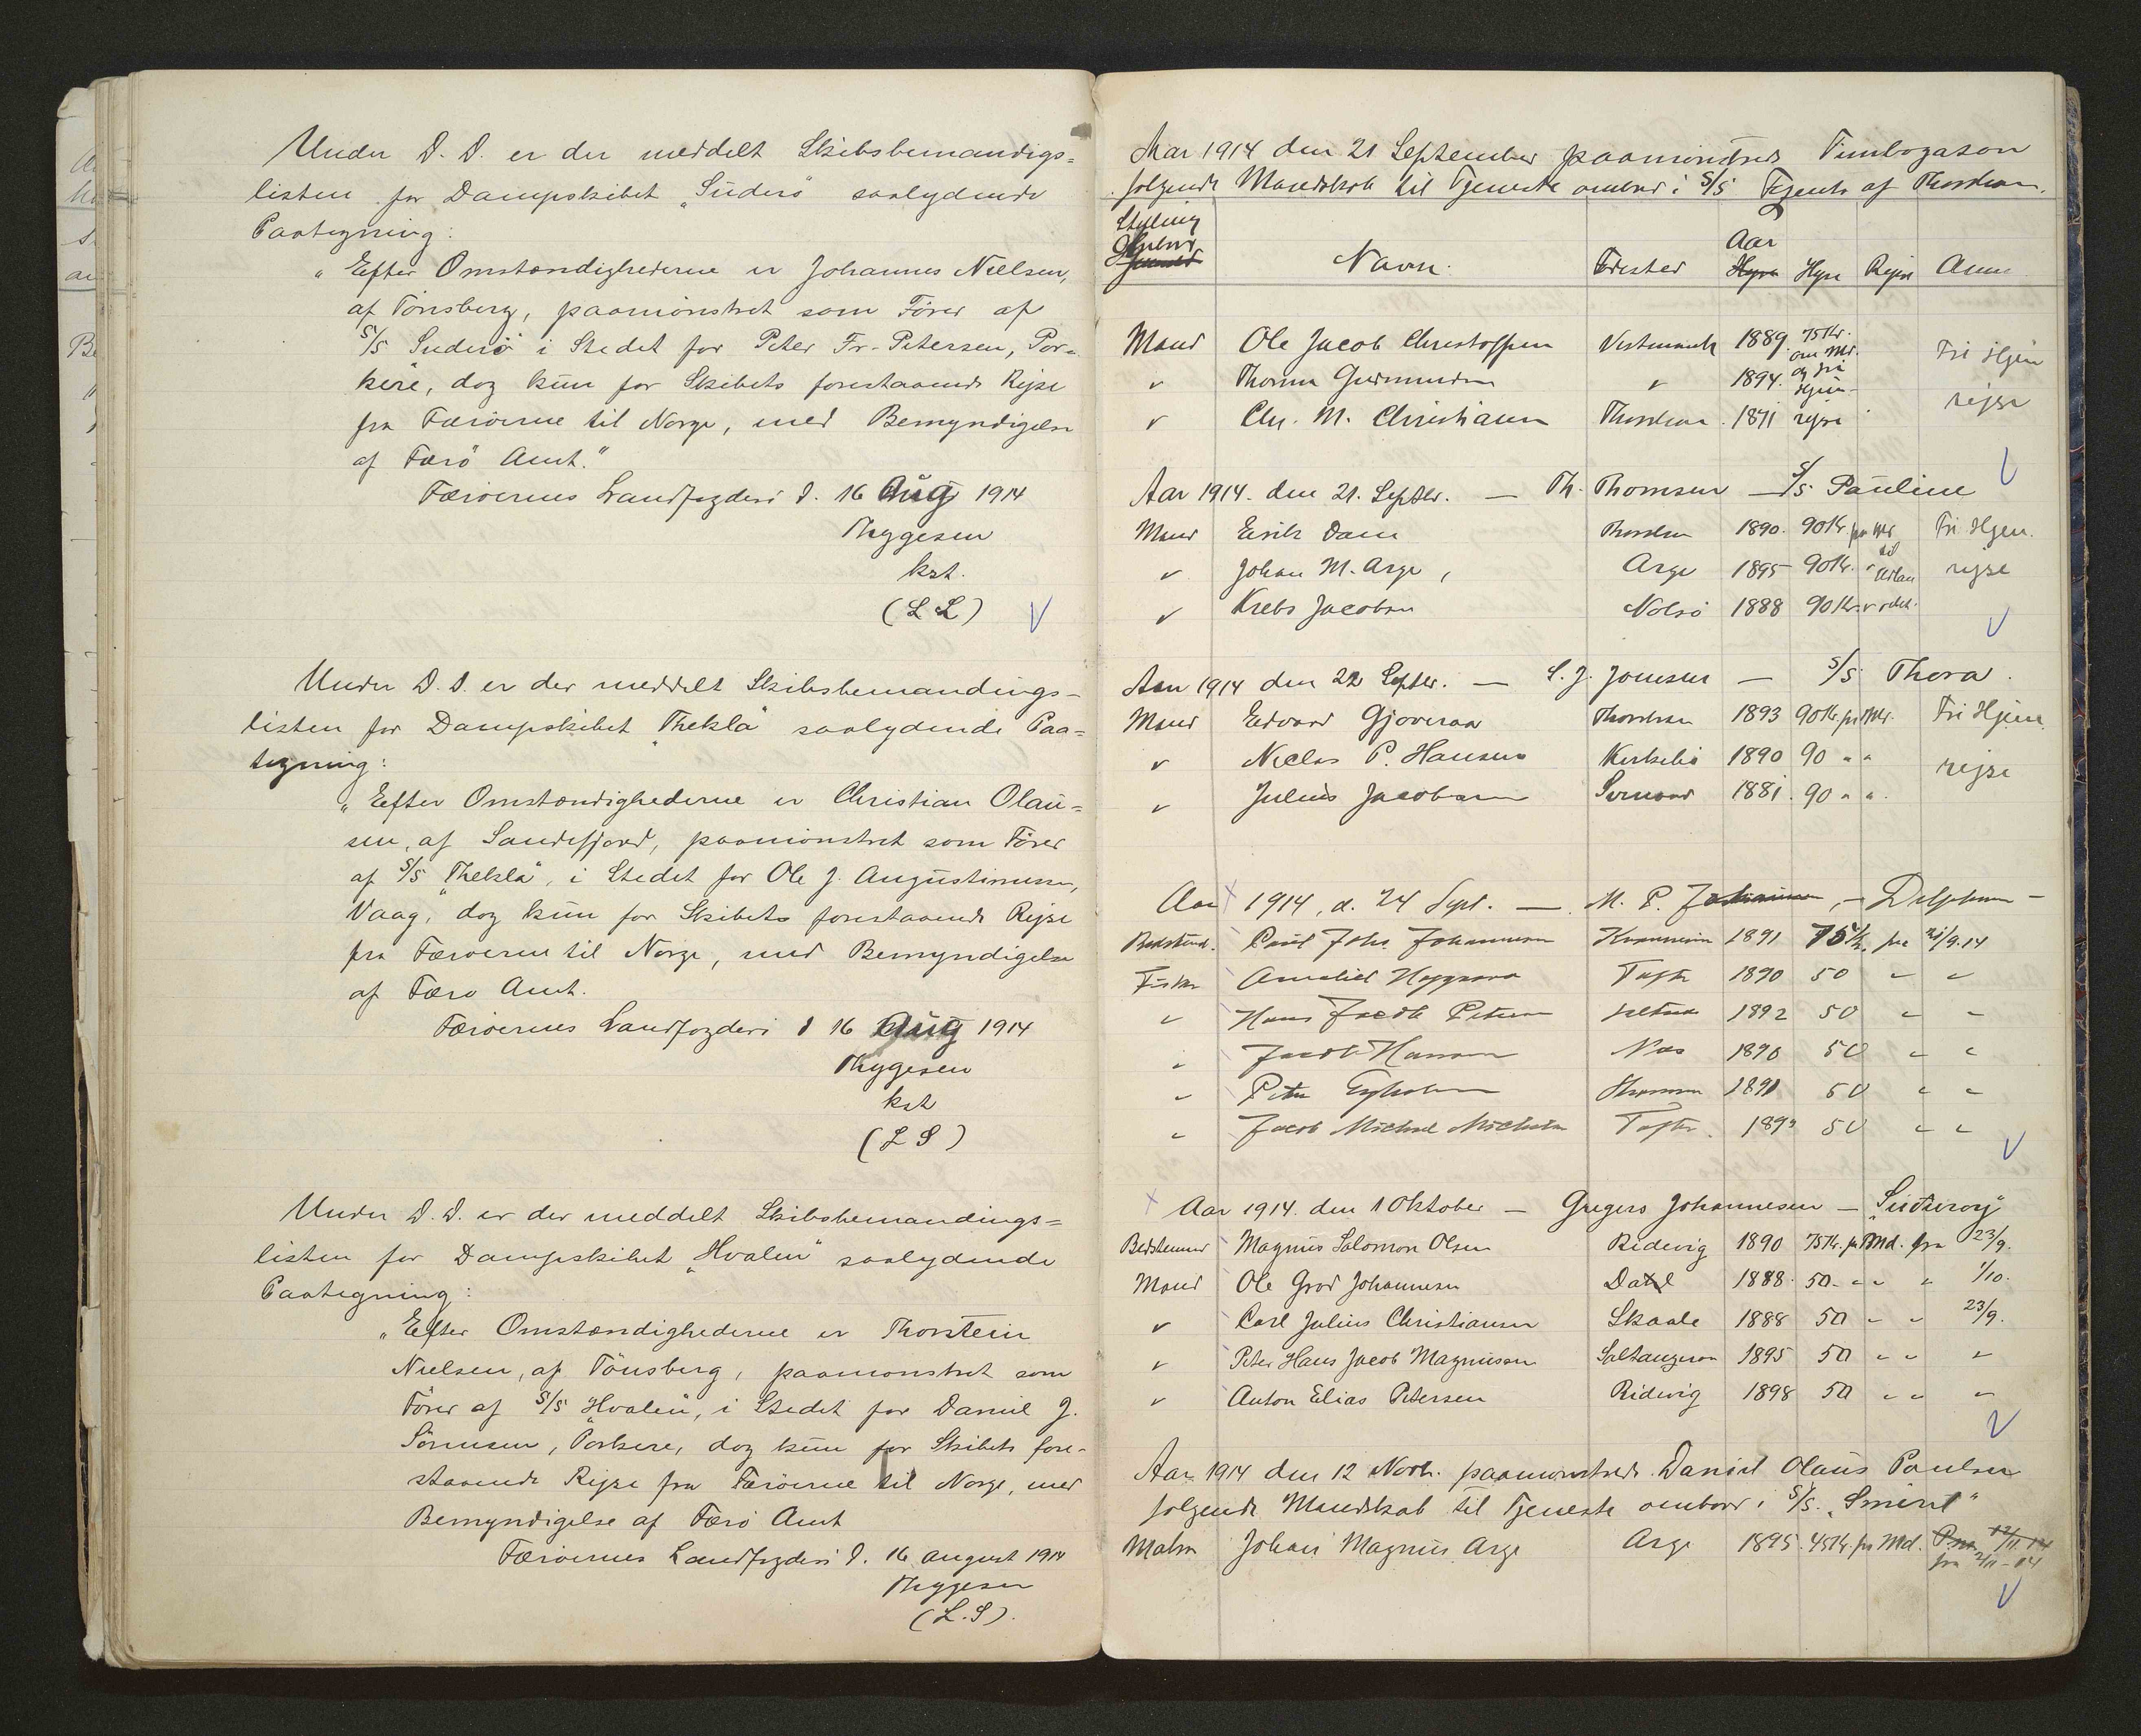 Under D. D. er der meddelt Skibsbemandigs=
listen for Dampskibet "Suderö" saalydende
Paategning:
"Efter Omstændighederne er Johannes Nielsen,
af Tönsberg, paamönstret som Förer af
S/S Suderö i Stedet for Peter Fr. Petersen, Por=
kere, dog kun for Skibets forestaaende Rejse
fra Færöerne til Norge, med Bemyndigelse
af Færö Amt."
Færöernes Landfogderi d. 16 Aug 1914
Thygesen
kst.
(L S)
Under D. D. er der meddelt Skibsbemandings=
listen for Dampskibet "Thekla" saalydende Paa=
tegning:
"Efter Omstændighederne er Christian Olau=
sen, af Sandefjord, paamönstret som Förer
af S/S "Thekla", i Stedet for Ole J. Augustinussen,
Vaag, dog kun for Skibets forestaaende Rejse
fra Færöerne til Norge, med Bemyndigelse
af Færö Amt.
Færöernes Landfogderi d 16 Aug 1914
Thygesen
kst
(L S)
Under D. D. er der meddelt Skibsbemandings=
listen for Dampskibet "Hvalen" saalydende
Paategning:
"Efter Omstændighederne er Thorstein
Nielsen, af Tönsberg, paamönstret som
Förer af S/S "Hvalen", i Stedet for Daniel J.
Sörensen, Porkere, dog kun for Skibets fore-
staaende Rejse fra Færöerne til Norge, med
Bemyndigelse af Færö Amt
Færöernes Landfogderi d. 16 august 1914
Thygesen
(L.S).
Aar 1914 den 21 September paamönstrede
følgende Mandskab til Tjeneste ombord i S/S af Thorshavn.
Stilling
Navn. Födested Aar Hyre Rejse Anm
Mand Ole Jacob Christoffersen Vestmanh 1889. 75 Kr.
om Md.
" Thomas Gudmundsen " 1894. og fri Fri Hjem
Hjem-
" Chr. M. Christiansen Thorshavn 1871 rejse rejse
Aar 1914. den 21. Septbr. — Th. Thomsen — S/S Pauline
Mand Eirik Dam Thorshavn 1890. 90 Kr. pr Md Fri Hjem.
" Johan M. Arge, Arge 1895 90 Kr. " rejse
" Krebs Jacobsen Nolsö 1888 90 Kr. "
Aar 1914 den 22 Septbr. — S. J. Joensen — S/S Thora.
Mand Edvard Gjoveraa Thorshavn 1893 90 Kr. pr Md. Fri Hjem
" Niclas P. Hansen Kirkebö 1890 90 " " rejse
" Julius Jacobsen 1881. 90 " ".
Aar 1914, d. 24 Sept. — M. P. — Delphinen —
Bedstmd. Poul Johs Johannesen 1891 75 Kr. fra 21/9.14
Fisker Toftir 1890 50 " "
" Hans Jacob Petersen 1892 50 " "
" Jacob Hansen Næs 1890 50 " "
" Peter 1890 50 " "
" Jacob Michael Michelsen Toftir. 50 " "
Aar 1914. den 1 Oktober — Gregers Johannesen — "Sudseroy"
Bedstemand Magnus Salomon Olsen Ridevig 1890 75 Kr. pr Md. fra 23/9.
Mand Ole Johannesen 1888. 50. " " " 1/10.
" Carl Julius Christiansen Skaale 1888 50 " " 23/9.
" Peter Hans Jacob Magnussen Saltangeraa 1895 50 " " "
" Anton Elias Petersen Ridevig 1898 50 " " "
Aar 1914 den 12 Novb. paamönstrede Daniel Olaus Poulsen
følgende Mandskab til Tjeneste ombord i S/S. "Smiril"
Matros Johan Magnus Arge Arge 1895. 45 Kr. pr Md. Fra 12/11 14
fra 2/11-14